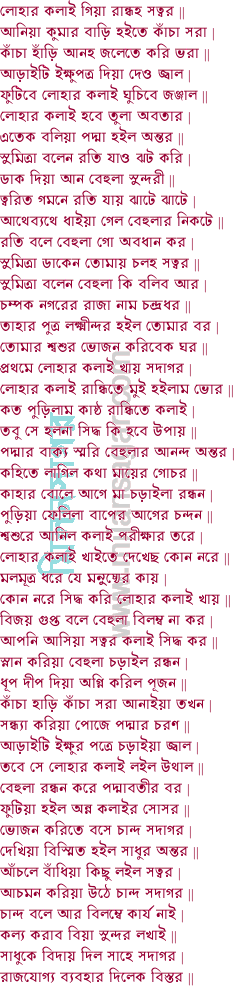 লোহার কলাই গিয়া রান্ধহ সত্বর ||
আনিয়া কুমার বাড়ি হইতে কাঁচা সরা |
কাঁচা হাঁড়ি আনহ জলেতে করি ভরা ||
আড়াইটি ইক্ষুপত্র দিয়া দেও জ্বাল |
ফুটিবে লোহার কলাই ঘুচিবে জঞ্জাল ||
লোহার কলাই হবে তুলা অবতার |
এতেক বলিয়া পদ্মা হইল অন্তর ||
সুমিত্রা বলেন রতি যাও ঝট করি |
ডাক দিয়া আন বেহুলা সুন্দরী ||
ত্বরিত গমনে রতি যায় ঝাটে ঝাটে |
আথেব্যথে ধাইয়া গেল বেহুলার নিকটে ||
রতি বলে বেহুলা গো অবধান কর |
সুমিত্রা ডাকেন তোমায় চলহ সত্বর ||
সুমিত্রা বলেন বেহুলা কি বলিব আর |
চম্পক নগরের রাজা নাম চন্দ্রধর ||
তাহার পুত্র লক্ষ্মীন্দর হইল তোমার বর |
তোমার শ্বশুর ভোজন করিবেক ঘর ||
প্রথমে লোহার কলাই খায় সদাগর |
লোহার কলাই রান্ধিতে মুই হইলাম ভোর ||
কত পুড়িলাম কাষ্ঠ রান্ধিতে কলাই |
তবু সে হলনা সিদ্ধ কি হবে উপায় ||
পদ্মার বাক্য স্মরি বেহুলার আনন্দ অন্তর |
কহিতে লাগিল কথা মায়ের গোচর ||
কাহার বোলে আগে মা চড়াইলা রন্ধন |
পুড়িয়া ফেলিলা বাপের আগের চন্দন ||
শ্বশুরে আনিল কলাই পরীক্ষার তরে |
লোহার কলাই খাইতে দেখেছ কোন নরে ||
মলমূত্র ধরে যে মনুষ্যের কায় |
কোন নরে সিদ্ধ করি লোহার কলাই খায় ||
বিজয় গুপ্ত বলে বেহুলা বিলম্ব না কর |
আপনি আসিয়া সত্বর কলাই সিদ্ধ কর ||
স্নান করিয়া বেহুলা চড়াইল রন্ধন |
ধূপ দীপ দিয়া অগ্নি করিল পূজন ||
কাঁচা হাড়ি কাঁচা সরা আনাইয়া তখন |
সন্ধ্যা করিয়া পোজে পদ্মার চরণ ||
আড়াইটি ইক্ষুর পত্রে চড়াইয়া জ্বাল |
তবে সে লোহার কলাই লইল উথাল ||
বেহুলা রন্ধন করে পদ্মাবতীর বর |
ফুটিয়া হইল অন্ন কলাইর সোসর ||
ভোজন করিতে বসে চান্দ সদাগর |
দেখিয়া বিস্মিত হইল সাধুর অন্তর ||
আঁচলে বাঁধিয়া কিছু লইল সত্বর |
আচমন করিয়া উঠে চান্দ সদাগর ||
চান্দ বলে আর বিলম্বে কার্য নাই |
কল্য করাব বিয়া সুন্দর লখাই ||
সাধুকে বিদায় দিল সাহে সদাগর |
রাজযোগ্য ব্যবহার দিলেক বিস্তর ||
মিলনসাগর
www.milansagar.com